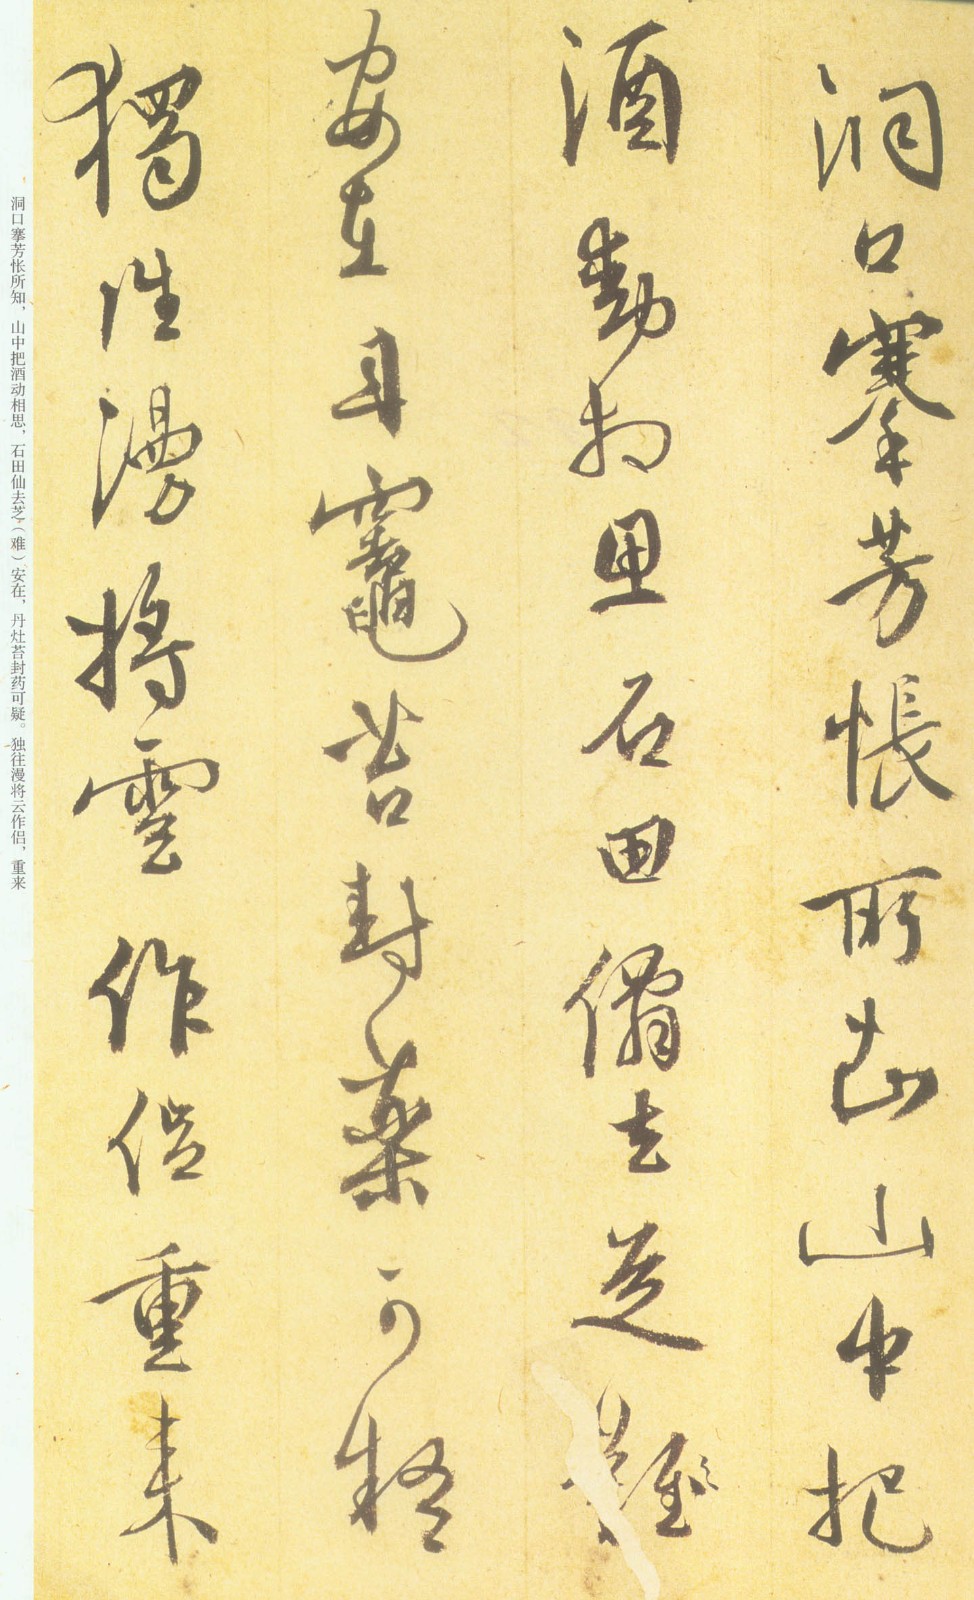 洞口搴芳悵所知山中把
酒動相思石田僊去芝難
安在丹竈苔封藥可疑
獨往漫將雲作侣重来
洞口搴芳怅所知，山中把酒动相思，石田仙去芝（难）安在，丹灶苔封药可疑。独往漫将云作侣，重来